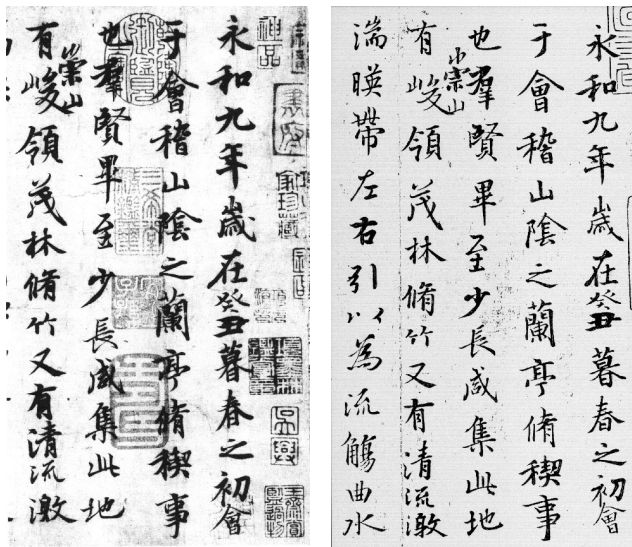 神品
永和九年歲在癸丑暮春之初會
于會稽山陰之蘭亭脩禊事
也羣賢畢至少長咸集此地
有崇山峻領茂林脩竹又有清流激
永和九年歲在癸丑暮春之初會
于會稽山陰之蘭亭脩禊事
也羣賢畢至少長咸集此地
有崇山峻領茂林脩竹又有清流激
湍暎帶左右引以為流觴曲水